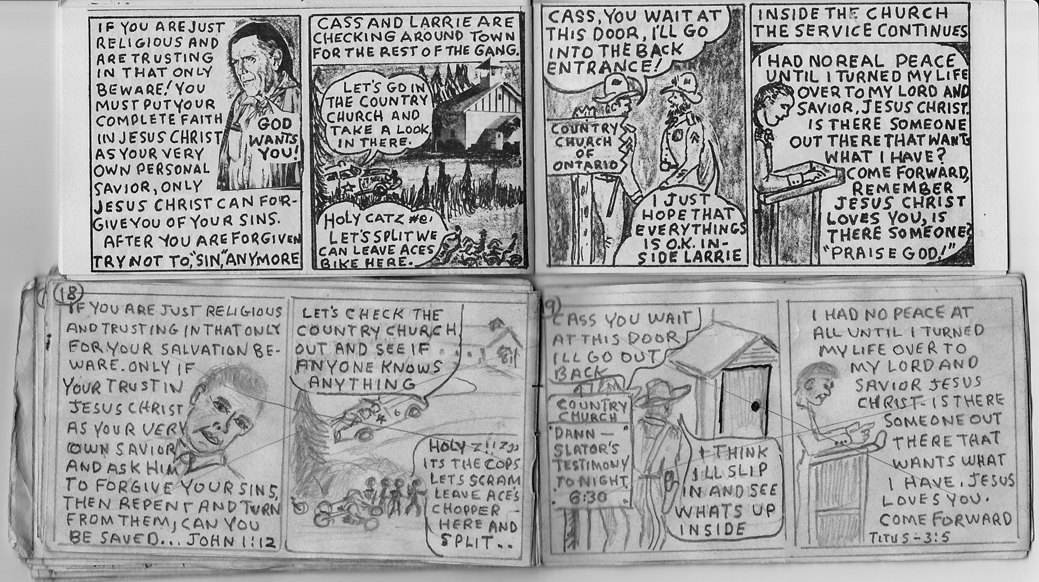 IF YOU ARE JUST
RELIGIOUS AND
ARE TRUSTING
IN THAT ONLY
BEWARE! YOU
MUST PUT YOUR
COMPLETE FAITH
IN JESUS CHRIST
AS YOUR VERY
OWN PERSONAL
SAVIOR, ONLY
JESUS CHRIST CAN FOR-
GIVE YOU OF YOUR SINS.
AFTER YOU ARE FORGIVEN
TRY NOT TO, "SIN," ANYMORE
GOD
WANTS
YOU!
CASS AND LARRIE ARE
CHECKING AROUND TOWN
FOR THE REST OF THE GANG.
LET'S GO IN
THE COUNTRY
CHURCH AND
TAKE A LOOK
IN THERE.
HOLY CATZ #@!
LET'S SPLIT WE
CAN LEAVE ACES
BIKE HERE.
CASS, YOU WAIT AT
THIS DOOR, I'LL GO
INTO THE BACK
ENTRANCE!
COUNTRY
CHURCH
OF
ONTARIO
I JUST
HOPE THAT
EVERYTHINGS
IS O.K. IN-
SIDE LARRIE
INSIDE THE CHURCH
THE SERVICE CONTINUES
I HAD NO REAL PEACE
UNTIL I TURNED MY LIFE
OVER TO MY LORD AND
SAVIOR, JESUS CHRIST.
IS THERE SOMEONE
OUT THERE THAT WANTS
WHAT I HAVE?
COME FORWARD,
REMEMBER
JESUS CHRIST
LOVES YOU, IS
THERE SOMEONE?
"PRAISE GOD!"
18
IF YOU ARE JUST RELIGIOUS
AND TRUSTING IN THAT ONLY
FOR YOUR SALVATION BE-
WARE. ONLY IF
YOUR TRUST IN
JESUS CHRIST
AS YOUR VERY
OWN SAVIOR
AND ASK HIM
TO FORGIVE YOUR SINS,
THEN REPENT AND TURN
FROM THEM, CAN YOU
BE SAVED... JOHN 1:12
LET'S CHECK THE
COUNTRY CHURCH
OUT AND SEE IF
ANYONE KNOWS
ANYTHING
ITS THE COPS
LETS SCRAM
LEAVE ACE'S
CHOPPER
HERE AND
SPLIT..
CASS YOU WAIT
AT THIS DOOR
I'LL GO OUT
BACK
COUNTRY
CHURCH
DANN-
SLATOR'S
TESTIMONY
TONIGHT
6:30
I THINK
I'LL SLIP
IN AND SEE
WHATS UP
INSIDE
I HAD NO PEACE AT
ALL UNTIL I TURNED
MY LIFE OVER TO
MY LORD AND
SAVIOR JESUS
CHRIST. IS THERE
SOMEONE OUT
THERE THAT
WANTS WHAT
I HAVE, JESUS
LOVES YOU.
COME FORWARD
TITUS-3:5